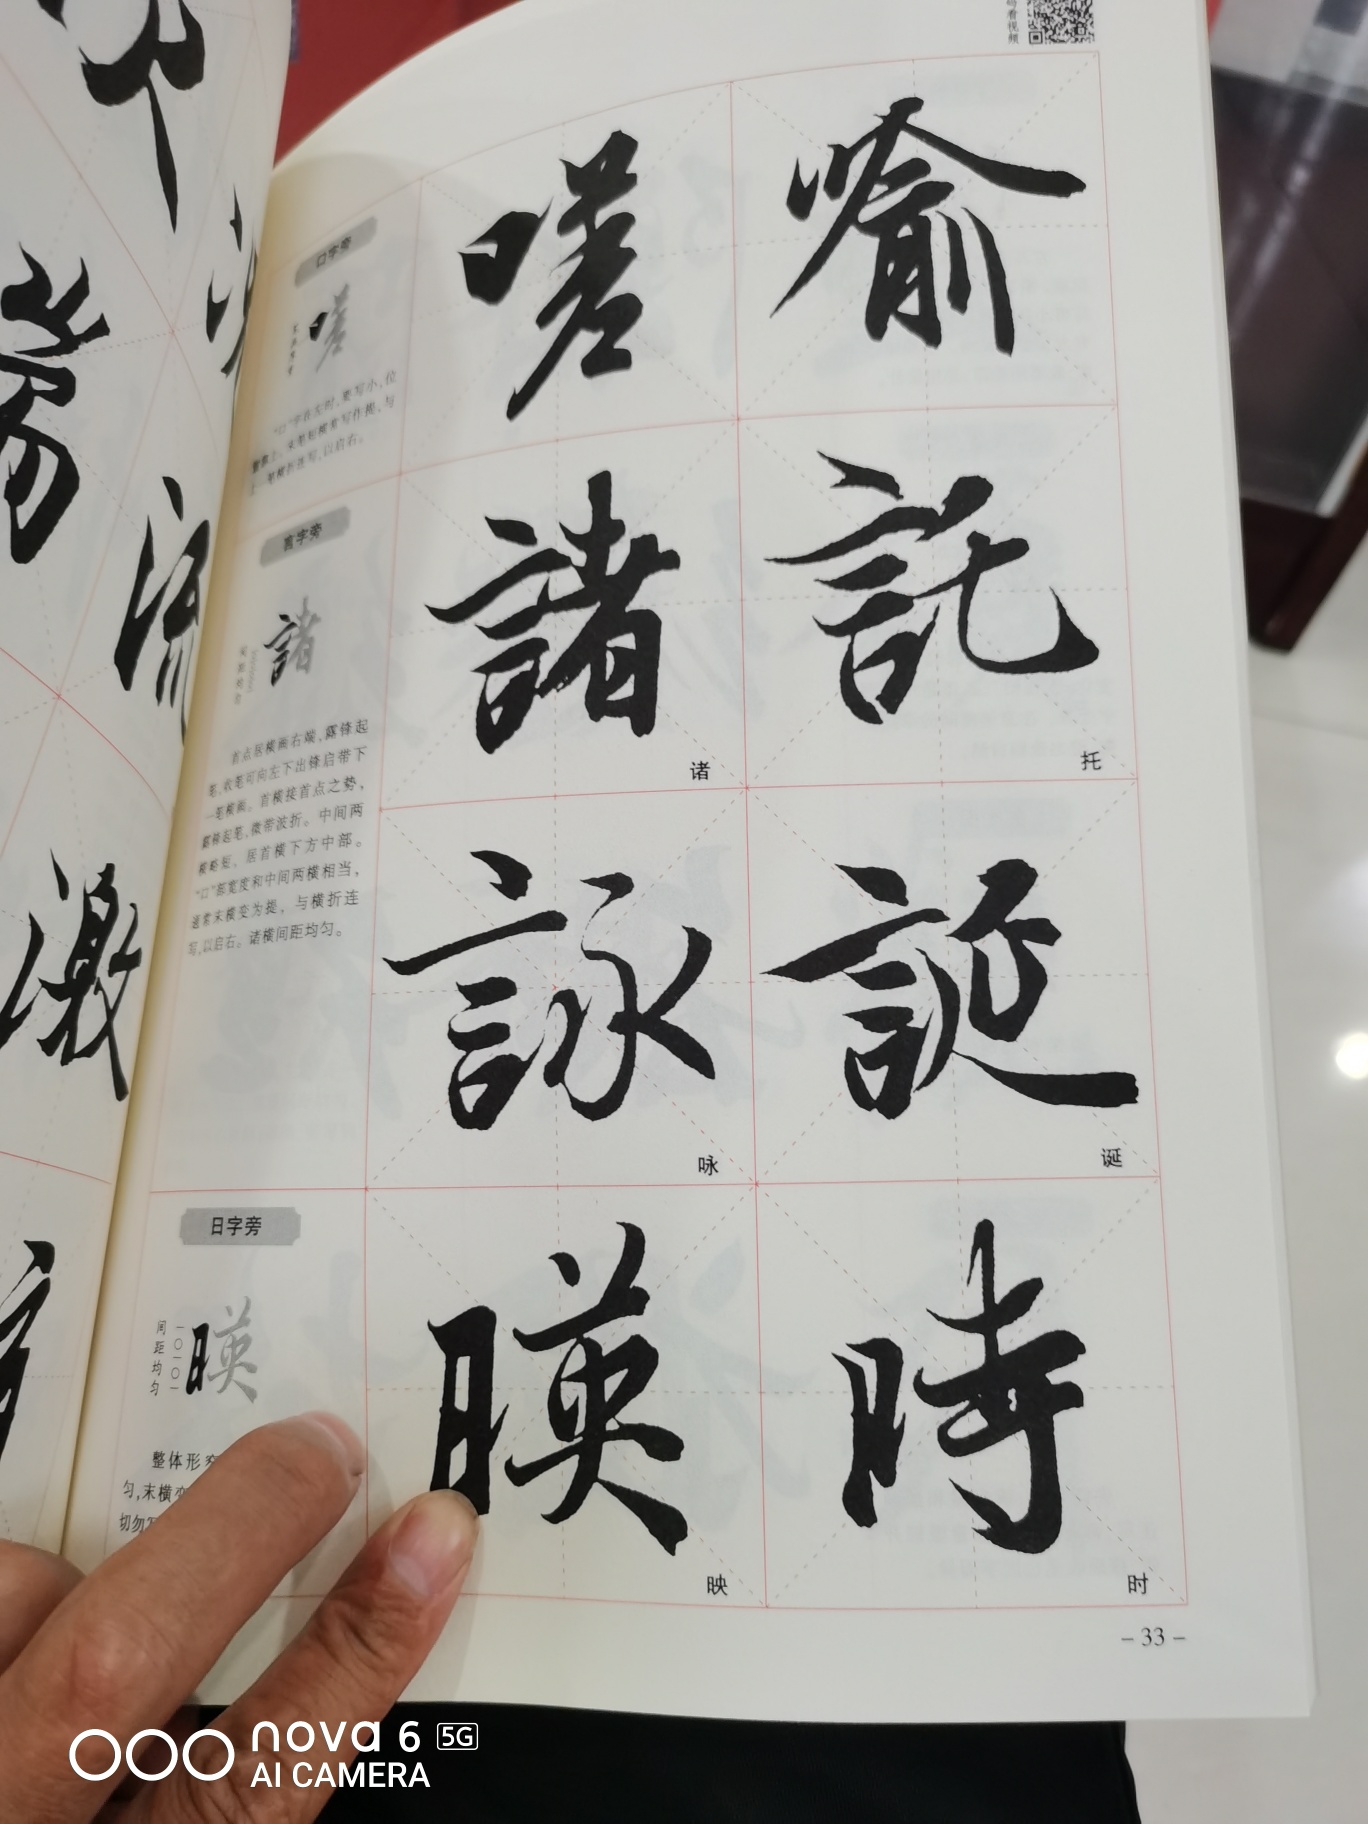 码看视频
口字旁
嗟
嗟
喻
“口”字在左时,要写小,位
置靠上。末笔短横常写作提,与
上一笔横折连写,以启右。
言字旁
諸
間距均匀
諸
诸
託
托
首点居横画右端,露锋起
笔,收笔可向左下出锋启带下
一笔横画。首横接首点之势,
露锋起笔,微带波折。中间两
横略短,居首横下方中部。
“口”部宽度和中间两横相当,
通常末横变为提,与横折连
写,以启右。诸横间距均匀。
詠
咏
誕
诞
日字旁
映
间距均匀
暎
映
時
时
整体形窄
匀,末横变
切勿写
流
激
- 33 -
nova 6 5G
AI CAMERA